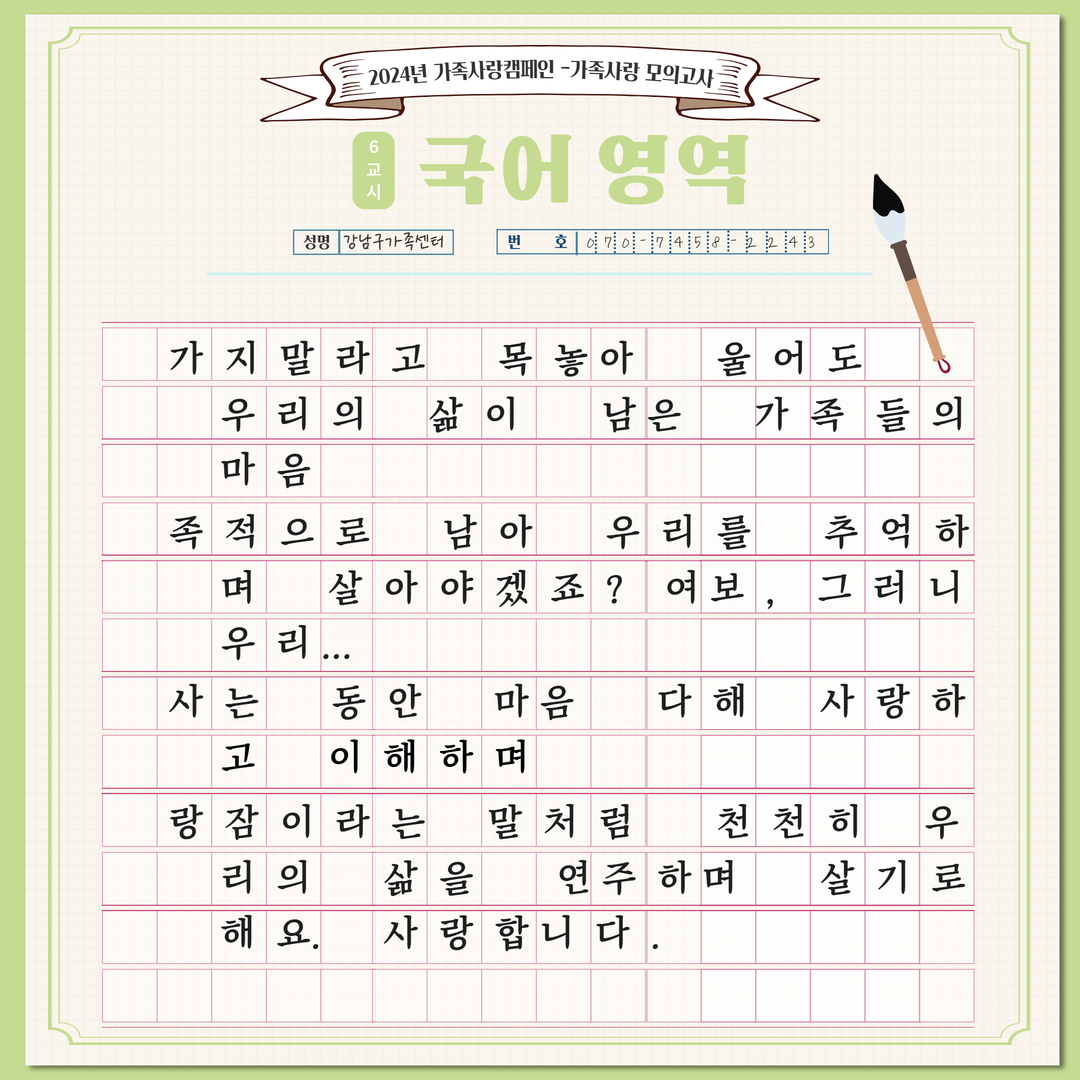 2024년 가족사랑캠페인 -가족사랑 모의고사
6교시 국어 영역
성명 강남구가족센터 번 호 070-7458-2243
가지말라고 목놓아 울어도
우리의 삶이 남은 가족들의
마음
족적으로 남아 우리를 추억하
며 살아야겠죠? 여보, 그러니
우리...
사는 동안 마음 다해 사랑하
고 이해하며
랑잠이라는 말처럼 천천히 우
리의 삶을 연주하며 살기로
해요. 사랑합니다.